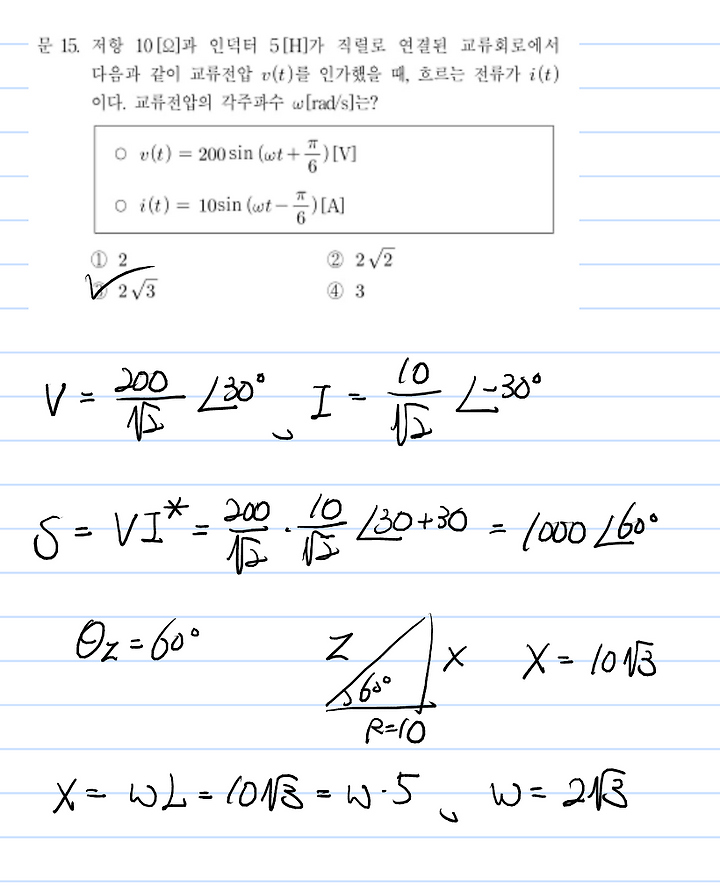 문 15. 저항 10[Ω]과 인덕터 5[H]가 직렬로 연결된 교류회로에서
다음과 같이 교류전압 v(t)를 인가했을 때, 흐르는 전류가 i(t)
이다. 교류전압의 각주파수 ω[rad/s]는?
○ v(t) = 200 sin (ωt + π/6) [V]
○ i(t) = 10sin (ωt − π/6) [A]
① 2
② 2√2
③ 2√3
④ 3
V = 200/√2 ∠30°, I = 10/√2 ∠-30°
S = VI* = 200/√2 · 10/√2 ∠30+30 = 1000 ∠60°
θz = 60°
Z
60°
X
R=10
X = 10√3
X = ωL = 10√3 = ω·5, ω = 2√3